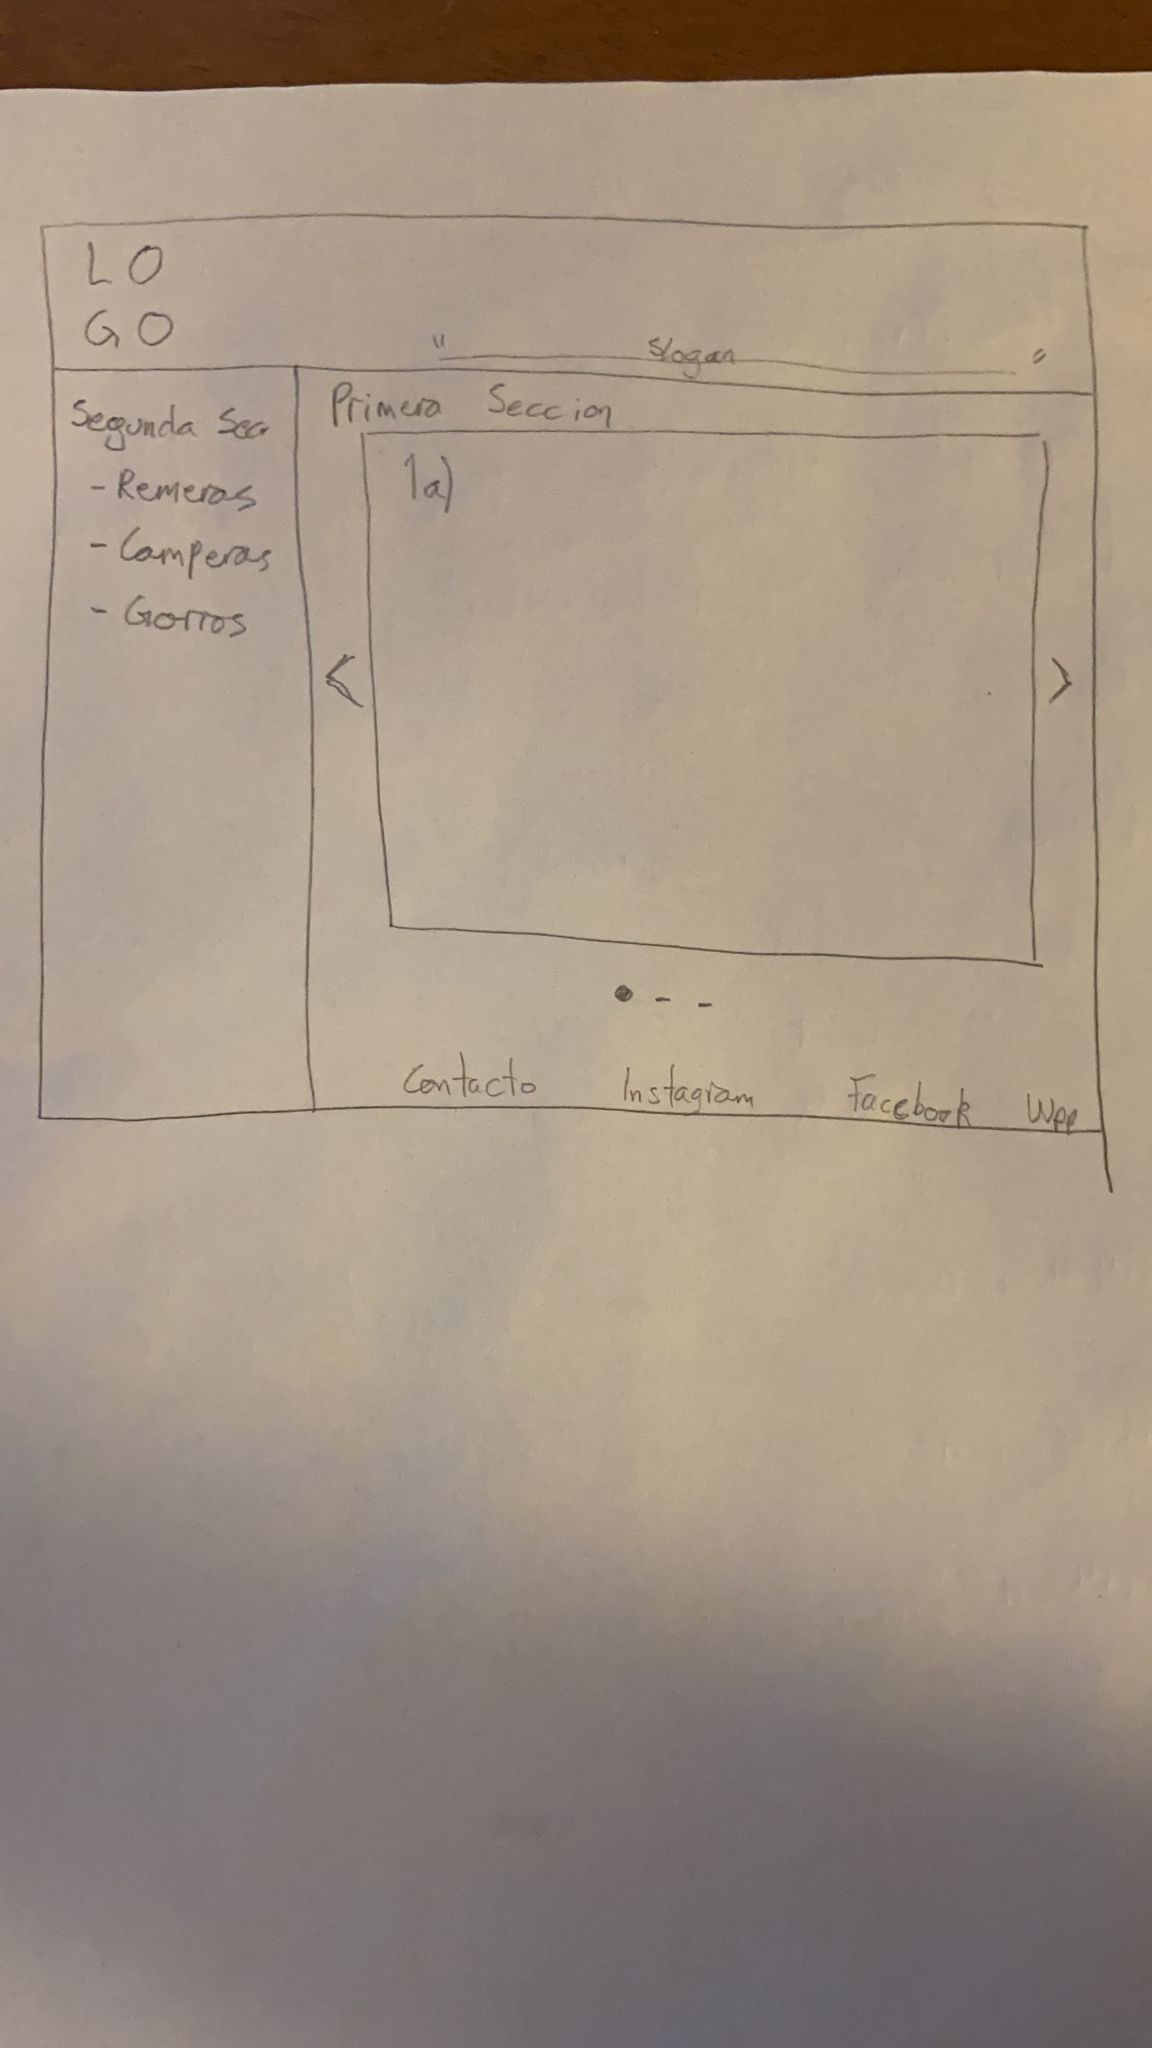 LO
GO
" Slogan "
Segunda Sec
- Remeras
- Camperas
- Gorros
Primera Seccion
1a)
<
>
Contacto Instagram Facebook Wpp